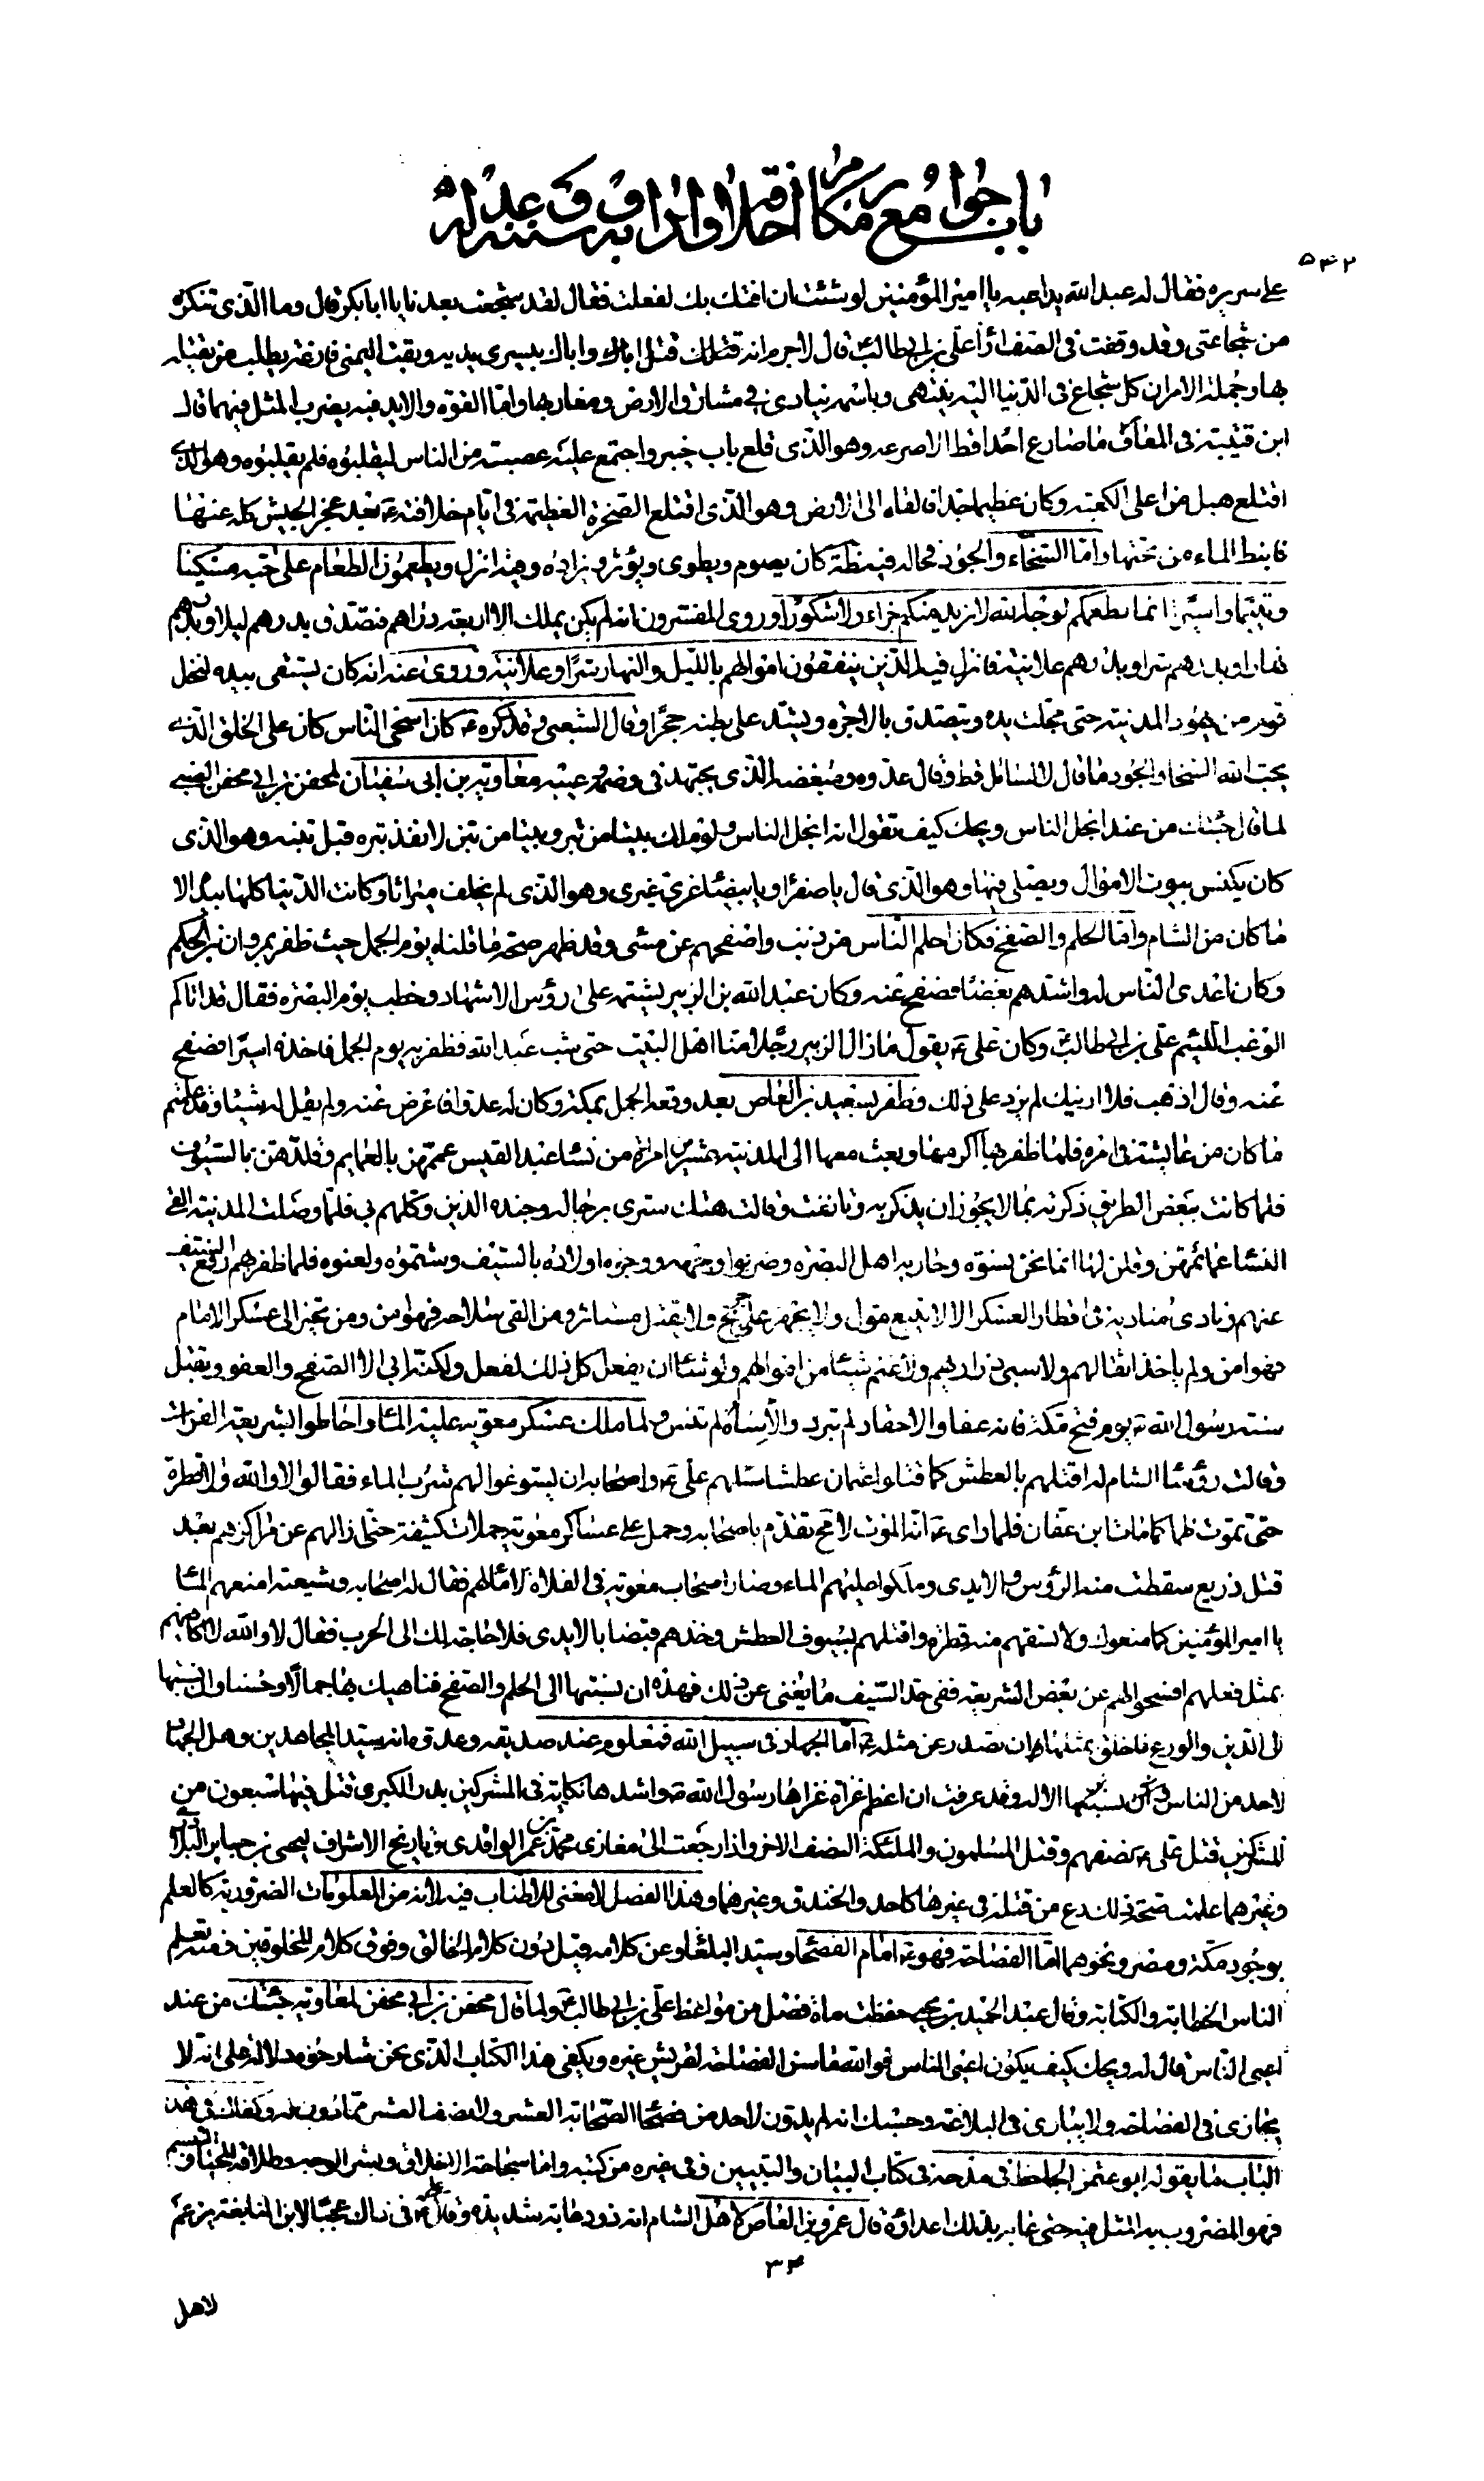 باب جوامع مكارم اخلاقه وآدابه وسننه وعدله
٥٤٢
على سريره فقال له عبد الله يداعبه يا امير المؤمنين لو شئت ان افتك بك لفعلت فقال لقد شجعت بعدنا يا ابا بكر قال وما الذى تنكره
من شجاعتى وقد وقفت فى الصف ازاء على بن ابى طالب قال لا جرم انه قتلك واباك بيسرى يديه وبقيت اليمنى فارغة يطلب من يقتله
بها وجملة الامر ان كل شجاع فى الدنيا اليه ينتهى وباسمه ينادى فى مشارق الارض ومغاربها واما القوة والايد فبه يضرب المثل فيهما قال
ابن قتيبة فى المعارف ما صارع احدا قط الا صرعه وهو الذى قلع باب خيبر واجتمع عليه عصبة من الناس ليقلبوه فلم يقلبوه وهو الذى
اقتلع هبل من اعلى الكعبة وكان عظيما جدا فالقاه الى الارض وهو الذى اقتلع الصخرة العظيمة فى ايام خلافته ع بعد عجز الجيش كله عنها
فانبط الماء من تحتها واما السخاء والجود فحاله فيه ظاهرة كان يصوم ويطوى ويؤثر بزاده وفيه انزل ويطعمون الطعام على حبه مسكينا
ويتيما واسيرا انما نطعمكم لوجه الله لا نريد منكم جزاء ولا شكورا وروى المفسرون انه لم يكن يملك الا اربعة دراهم فتصدق بدرهم ليلا وبدرهم
نهارا وبدرهم سرا وبدرهم علانية فانزل فيه الذين ينفقون اموالهم بالليل والنهار سرا وعلانية وروى عنه انه كان يستقى بيده لنخل
قوم من يهود المدينة حتى مجلت يده ويتصدق بالاجرة ويشد على بطنه حجرا وقال الشعبى وقد ذكره ع كان اسخى الناس كان على الخلق الذى
يحب الله السخاء والجود ما قال لا لسائل قط وقال عدوه ومبغضه الذى يجتهد فى وصمه وعيبه معاوية بن ابى سفيان لمحفن بن ابى محفن الضبى
لما قال جئتك من عند ابخل الناس ويحك كيف تقول انه ابخل الناس ولو ملك بيتا من تبر وبيتا من تبن لانفذ تبره قبل تبنه وهو الذى
كان يكنس بيوت الاموال ويصلى فيها وهو الذى قال يا صفراء ويا بيضاء غرى غيرى وهو الذى لم يخلف ميراثا وكانت الدنيا كلها بيده الا
ما كان من الشام واما الحلم والصفح فكان احلم الناس من ذنب واصفحهم عن مسئ وقد ظهر صحة ما قلناه يوم الجمل حيث ظفر بمروان بن الحكم
وكان اعدى الناس له واشدهم بغضا فصفح عنه وكان عبد الله بن الزبير يشتمه على رؤس الاشهاد وخطب يوم البصرة فقال قد اتاكم
الوغب اللئيم على بن ابى طالب وكان على ع يقول ما زال الزبير رجلا منا اهل البيت حتى شب عبد الله فظفر به يوم الجمل فاخذه اسيرا فصفح
عنه وقال اذهب فلا ارينك لم يزد على ذلك وظفر بسعيد بن العاص بعد وقعة الجمل بمكة وكان له عدوا فاعرض عنه ولم يقل له شيئا وقد علمتم
ما كان من عايشة فى امره فلما ظفر بها اكرمها وبعث معها الى المدينة عشرين امراة من نساء عبد القيس عممهن بالعمايم وقلدهن بالسيوف
فلما كانت ببعض الطريق ذكرته بما لا يجوز ان يذكر به وتاففت وقالت هتك سترى برجاله وجنده الذين وكلهم بى فلما وصلت المدينة القى
النساء عمائمهن وقلن لها انما نحن نسوة وحاربه اهل البصرة وضربوا وجهه ووجوه اولاده بالسيف وشتموه ولعنوه فلما ظفر بهم رفع السيف
عنهم ونادى مناديه فى اقطار العسكر الا لا يتبع مول ولا يجهز على جريح ولا يقتل مستاسر ومن القى سلاحه فهو امن ومن تحيز الى عسكر الامام
فهو امن ولم ياخذ اثقالهم ولا سبى ذراريهم ولا غنم شيئا من اموالهم ولو شاء ان يفعل كل ذلك لفعل ولكنه ابى الا الصفح والعفو وتقيل
سنة رسول الله ص يوم فتح مكة فانه عفا والاحقاد لم تبرد والاساءة لم تنس ولما ملك عسكر معوية عليه الماء واحاطوا بشريعة الفرات
وقالت رؤساء الشام له اقتلهم بالعطش كما قتلوا عثمان عطشا سئلهم على ع واصحابه ان يسوغوا لهم شرب الماء فقالوا لا والله ولا قطرة
حتى تموت ظمأ كما مات ابن عفان فلما راى ع انه الموت لا محالة تقدم باصحابه وحمل على عساكر معوية حملات كثيفة حتى ازالهم عن مراكزهم بعد
قتل ذريع سقطت منه الرؤس والايدى وملكوا عليهم الماء وصار اصحاب معوية فى الفلاة لا ماء لهم فقال له اصحابه وشيعته امنعهم الماء
يا امير المؤمنين كما منعوك ولا تسقهم منه قطرة واقتلهم بسيوف العطش وخذهم قبضا بالايدى فلا حاجة لك الى الحرب فقال لا والله لا اكافيهم
بمثل فعلهم افسحوا لهم عن بعض الشريعة ففى حد السيف ما يغنى عن ذلك فهذه ان نسبتها الى الحلم والصفح فناهيك بها جمالا وحسنا وان نسبتها
الى الدين والورع فاخلق بمثلها ان تصدر عن مثله ع اما الجهاد فى سبيل الله فمعلوم عند صديقه وعدوه انه سيد المجاهدين وهل الجهاد
لاحد من الناس الا له وقد عرفت ان اعظم غزاة غزاها رسول الله ص واشدها نكاية فى المشركين بدر الكبرى قتل فيها سبعون من
المشركين قتل على ع نصفهم وقتل المسلمون والملئكة النصف الاخر واذا رجعت الى مغازى محمد بن عمر الواقدى وتاريخ الاشراف ليحيى بن جابر البلاذرى
وغيرهما علمت صحة ذلك دع من قتله فى غيرها كاحد والخندق وغيرهما وهذا الفصل لا معنى للاطناب فيه لانه من المعلومات الضرورية كالعلم
بوجود مكة ومصر ونحوهما اما الفصاحة فهو ع امام الفصحاء وسيد البلغاء وعن كلامه قيل دون كلام الخالق وفوق كلام المخلوقين ومنه تعلم
الناس الخطابة والكتابة وقال عبد الحميد بن يحيى حفظت ماة فصل من مواعظ على بن ابى طالب ولما قال محفن بن ابى محفن لمعاوية جئتك من عند
اعيى الناس قال له ويحك كيف يكون اعيى الناس فوالله ما سن الفصاحة لقريش غيره ويكفى هذا الكتاب الذى نحن شارحوه دلالة على انه لا
يجارى فى الفصاحة ولا يبارى فى البلاغة وحسبك انه لم يدون لاحد من فصحاء الصحابة العشر ولا نصف العشر مما دون له وكفاك فى هذا
الباب ما يقوله ابو عثمن الجاحظ فى مدحه فى كتاب البيان والتبيين وفى غيره من كتبه واما سجاحة الاخلاق وبشر الوجه وطلاقة المحيا والتبسم
فهو المضروب به المثل فيه حتى عابه بذلك اعداؤه قال عمرو بن العاص لاهل الشام انه ذو دعابة شديدة وقال على ع فى ذاك عجبا لابن النابغة يزعم
٣٤
لاهل